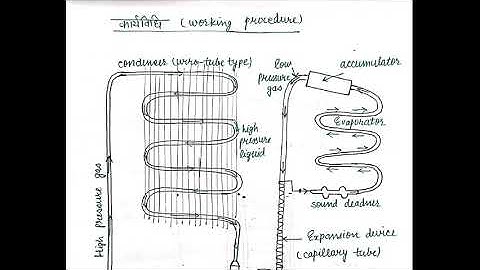 कार्यविधि (working procedure)
condenser (wire-tube type)
low pressure gas
accumulator
Evaporator
high pressure liquid
High pressure gas
sound deadner
Expansion device
(capillary tube)